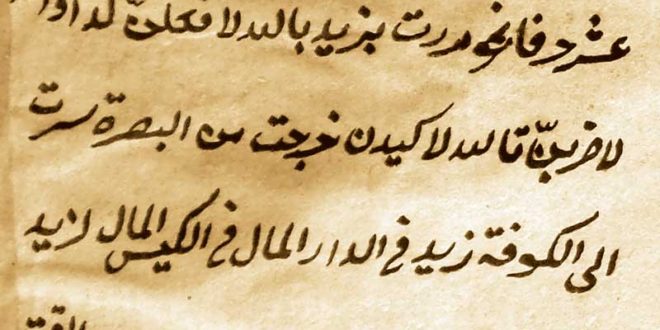 عشر حرفا نحو مررت بزيد بالله لافعلن
لاضربن تالله لاكيدن خرجت من البصرة سرت
الى الكوفة زيد في الدار المال في الكيس المال لزيد